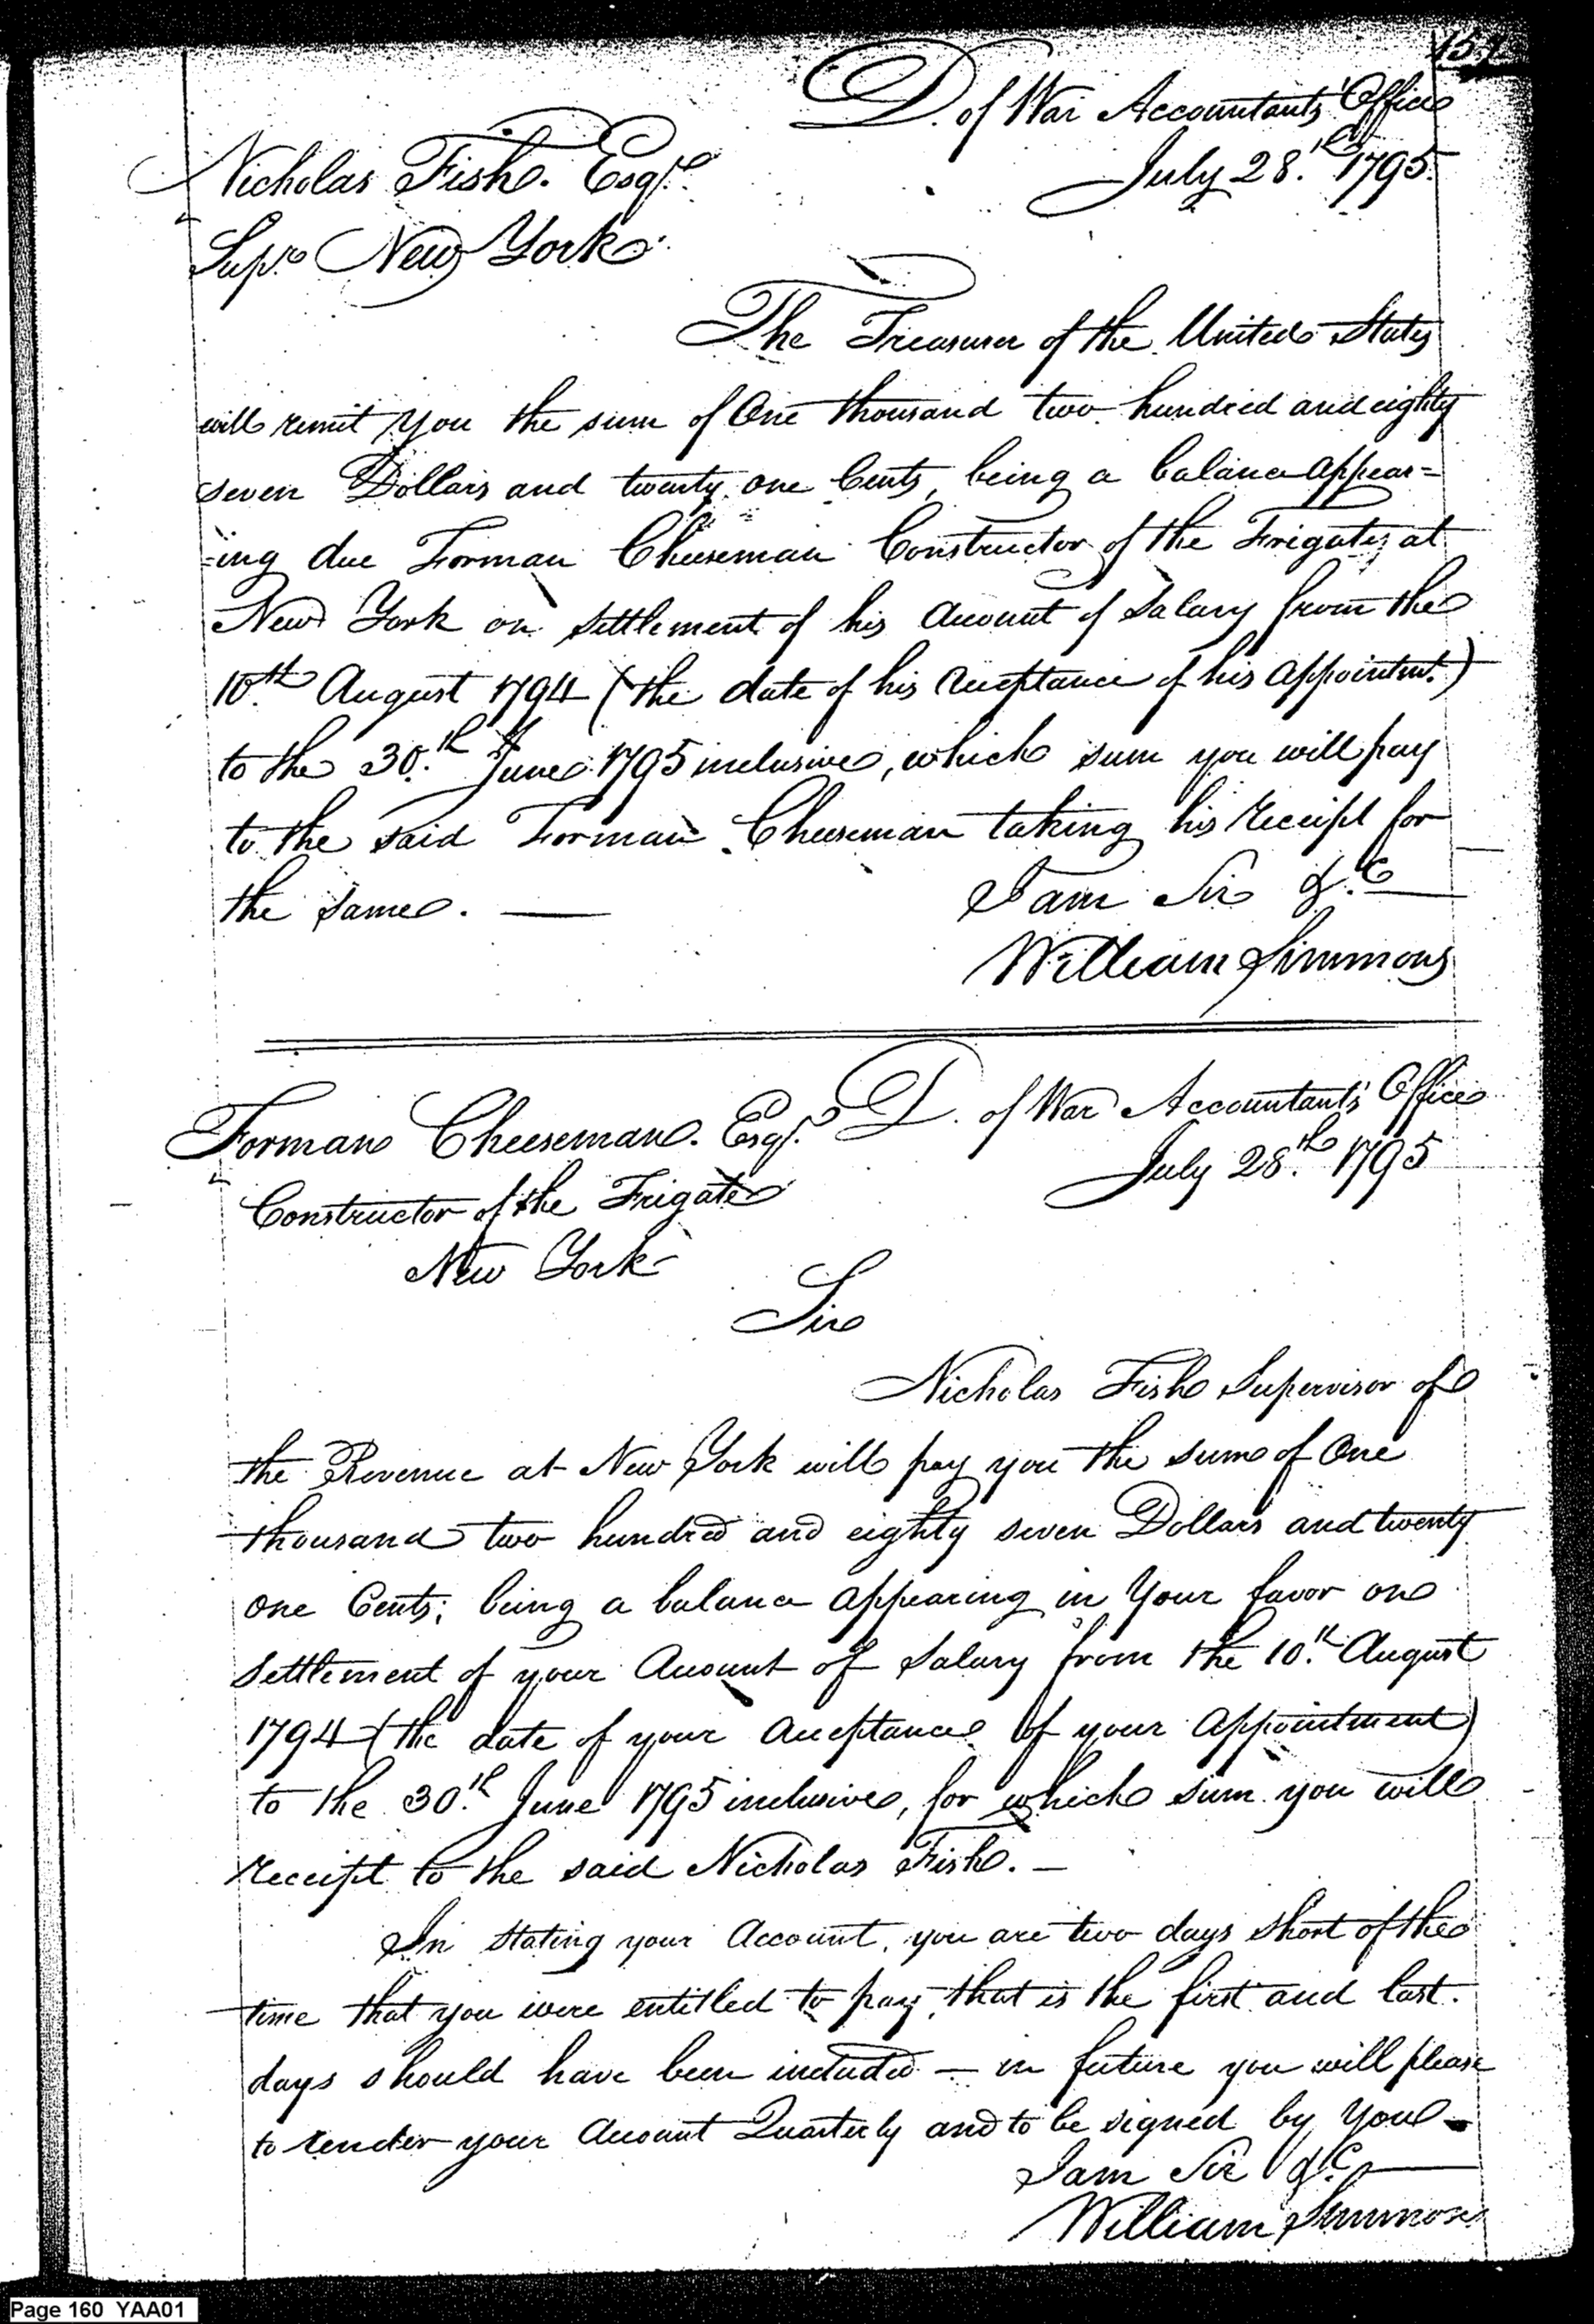 D. of War Accountants Office
July 28.th 1795.
Nicholas Fish. Esqre.
Supr. New York.
The Treasurer of the United States
will remit you the sum of One thousand two hundred and eighty
seven Dollars and twenty one Cents, being a balance appear=
=ing due Forman Cheeseman Constructor of the Frigate, at
New York on settlement of his Account of Salary from the
10th. August 1794 (the date of his Acceptance of his Appointmt.)
to the 30.th June 1795 inclusive, which sum you will pay
to the said Forman Cheeseman taking his receipt for
the same. —
I am Sir &.c
William Simmons
Forman Cheeseman. Esqr.
D. of War Accountant's Office
July 28.th 1795
Constructor of the Frigate
New York
Sir
Nicholas Fish Supervisor of
the Revenue at New York will pay you the sum of One
thousand two hundred and eighty seven Dollars and twenty
one Cents; being a balance appearing in Your favor on
settlement of your Account of Salary from the 10.th August
1794 (the date of your Acceptance of your Appointment)
to the 30.th June 1795 inclusive, for which sum you will
receipt to the said Nicholas Fish. —
In stating your Account, you are two days short of the
time that you were entitled to pay, that is the first and last
days should have been included — in future you will please
to render your Account Quarterly and to be signed by You
I am Sir &.c
William Simmons
Page 160 YAA01